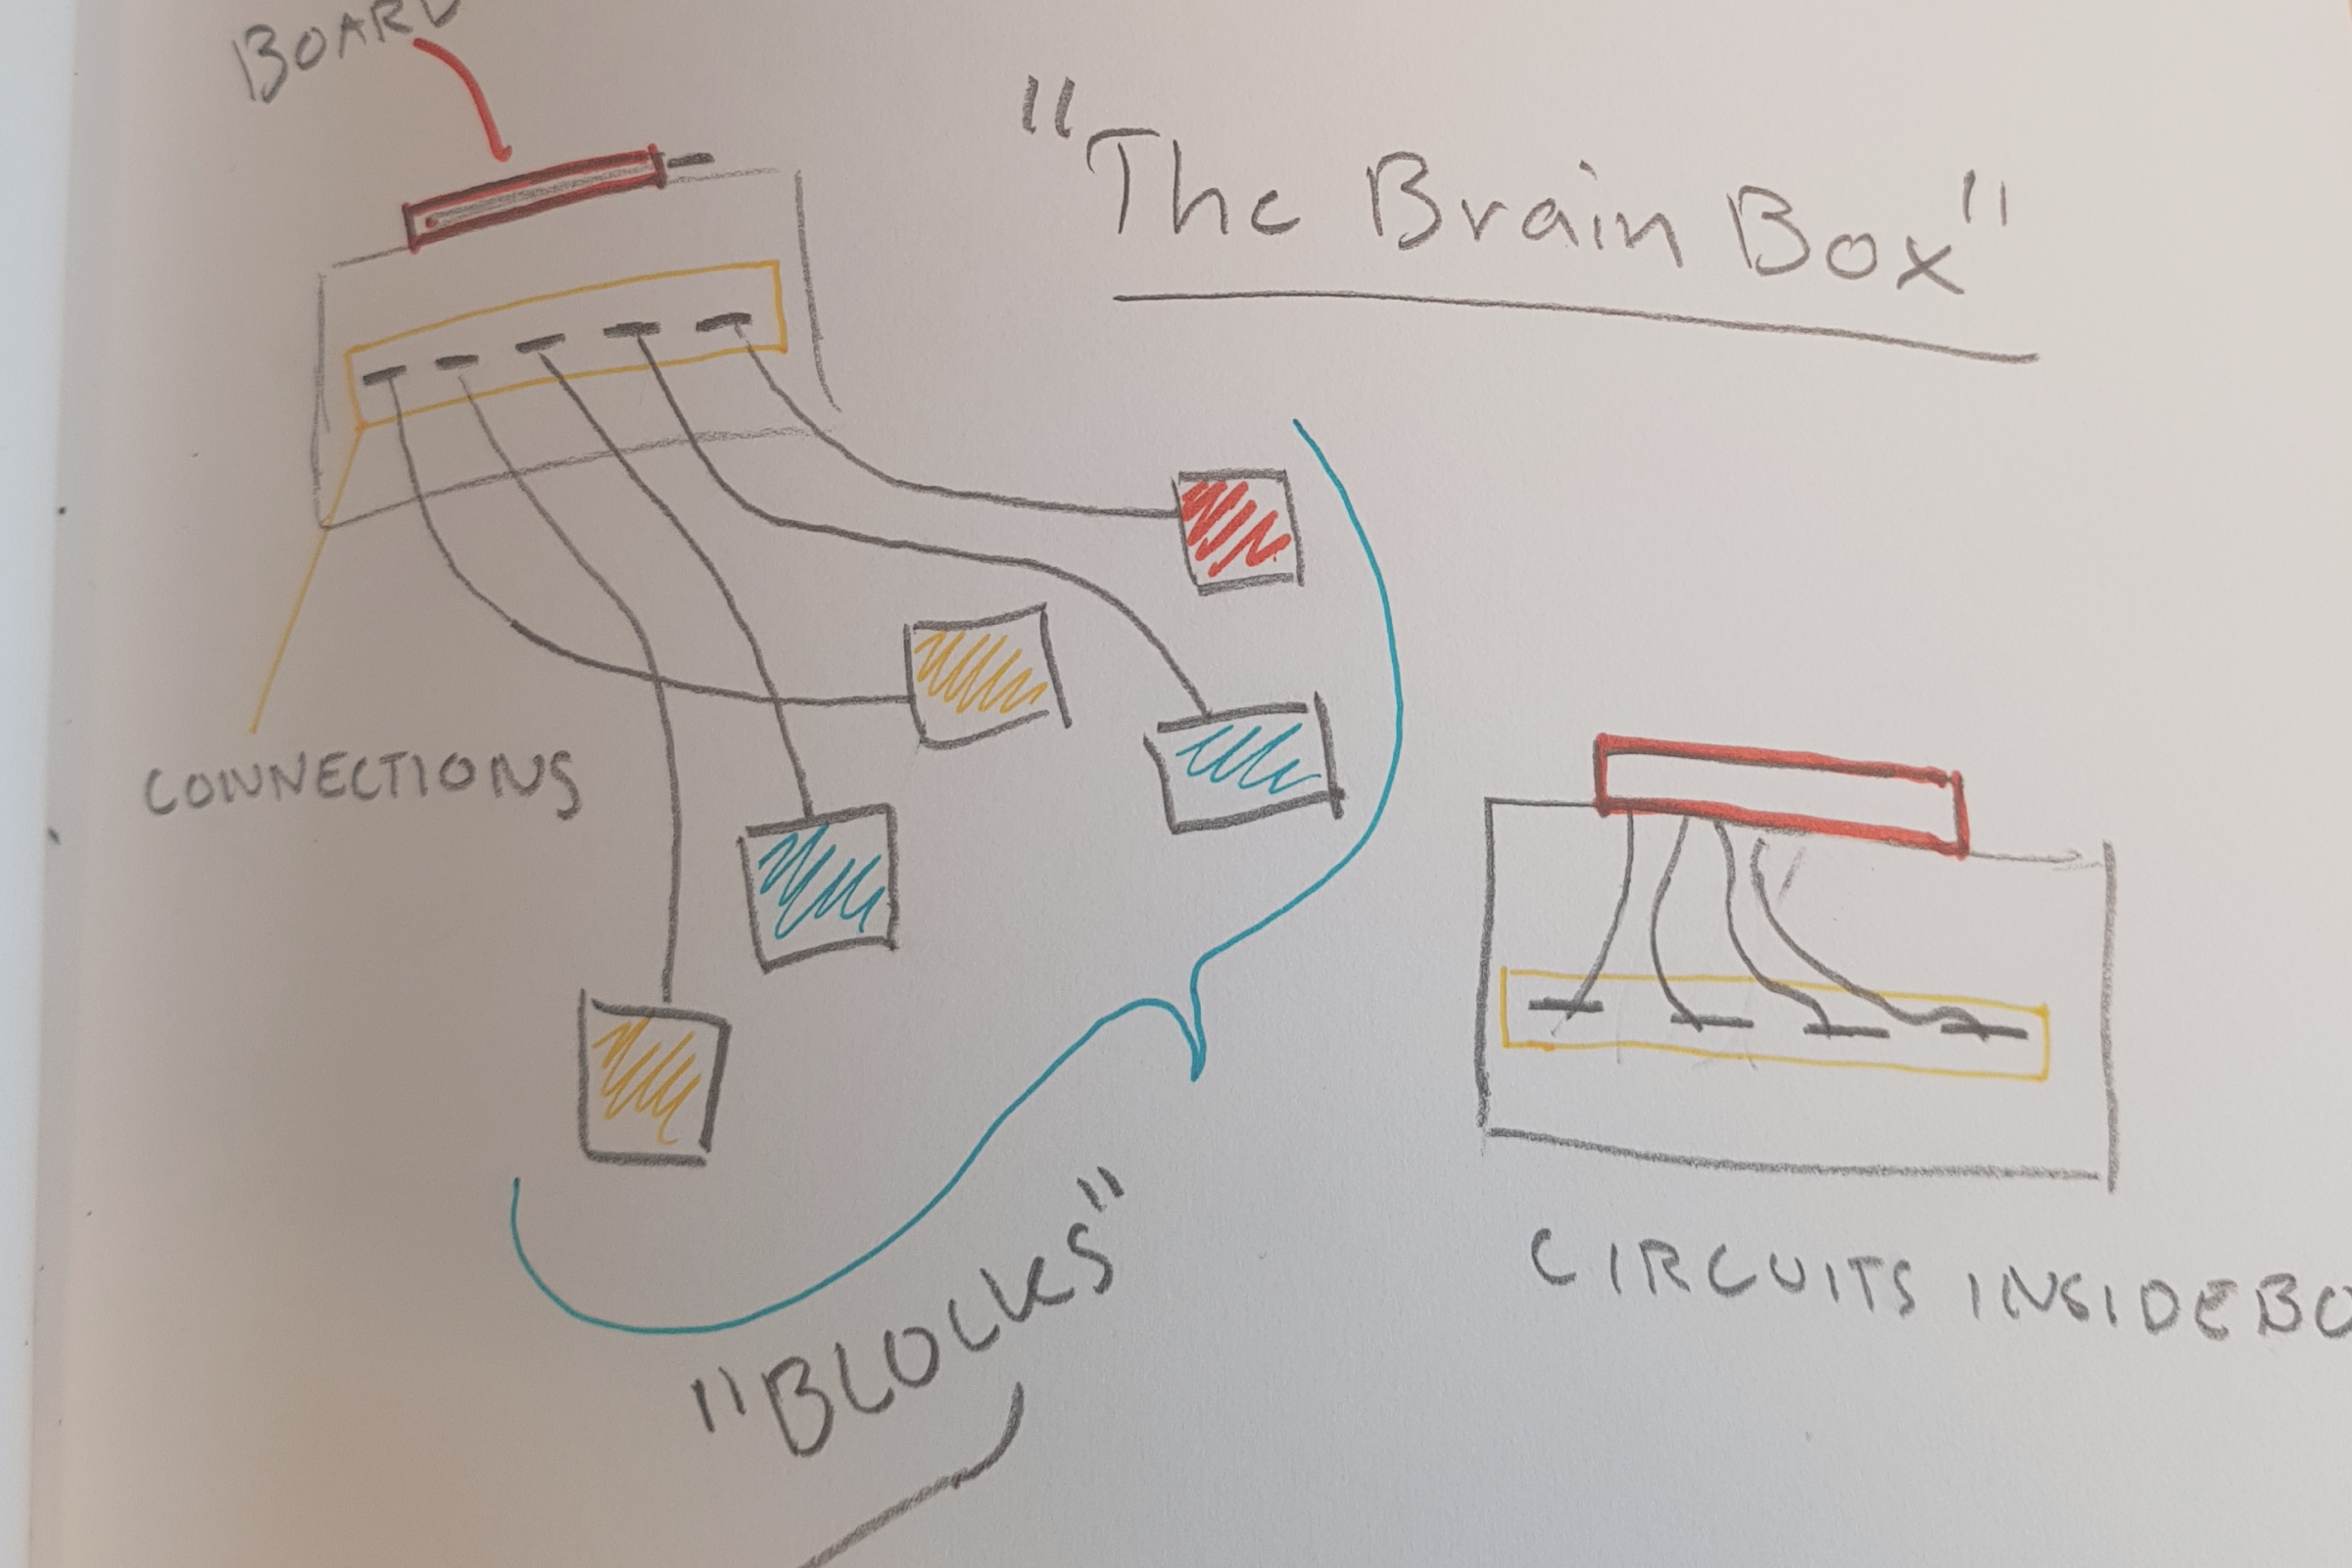 BOARD
"The Brain Box"
CONNECTIONS
"BLOCKS"
CIRCUITS INSIDE BO